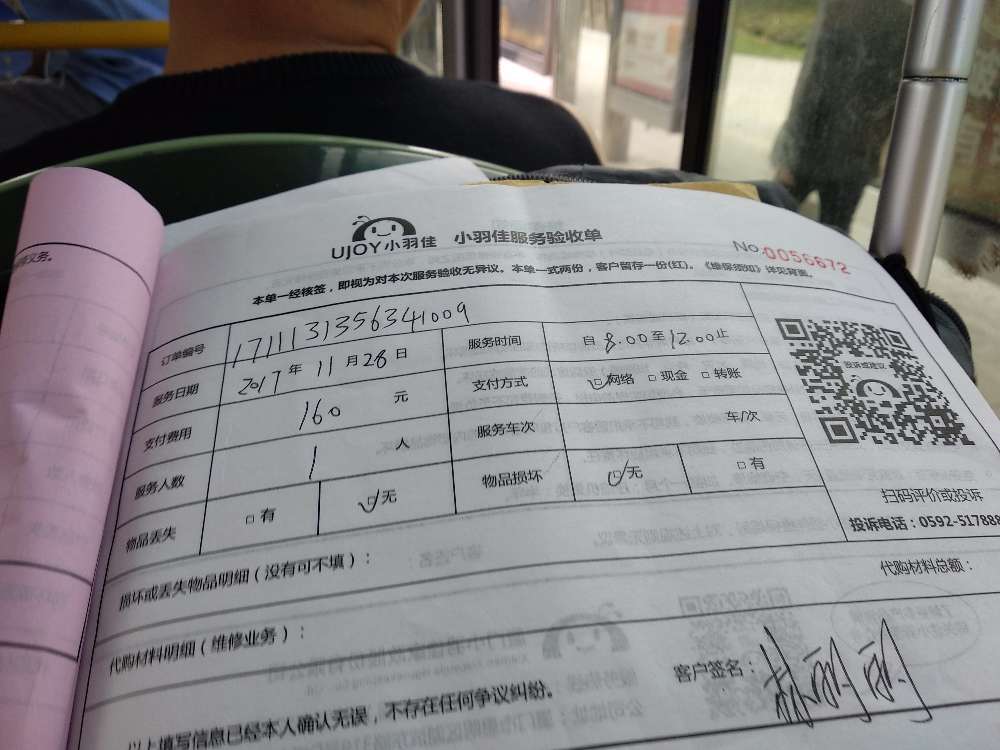 UJOY小羽佳 小羽佳服务验收单
No.0056672
本单一经核签，即视为对本次服务验收无异议。本单一式两份，客户留存一份(红)。《维保须知》详见背面。
订单编号 1711131356341009
服务时间 自 8:00 至 12:00 止
服务日期 2017 年 11 月 28 日
支付方式 ☑网络 □现金 □转账
支付费用 160 元
服务车次 车/次
服务人数 1 人
物品损坏 ☑无 □有
物品丢失 □有 ☑无
投诉或建议
扫码评价或投诉
投诉电话：0592-517888
损坏或丢失物品明细（没有可不填）：
代购材料总额：
代购材料明细（维修业务）：
客户签名：
以上填写信息已经本人确认无误，不存在任何争议纠纷。